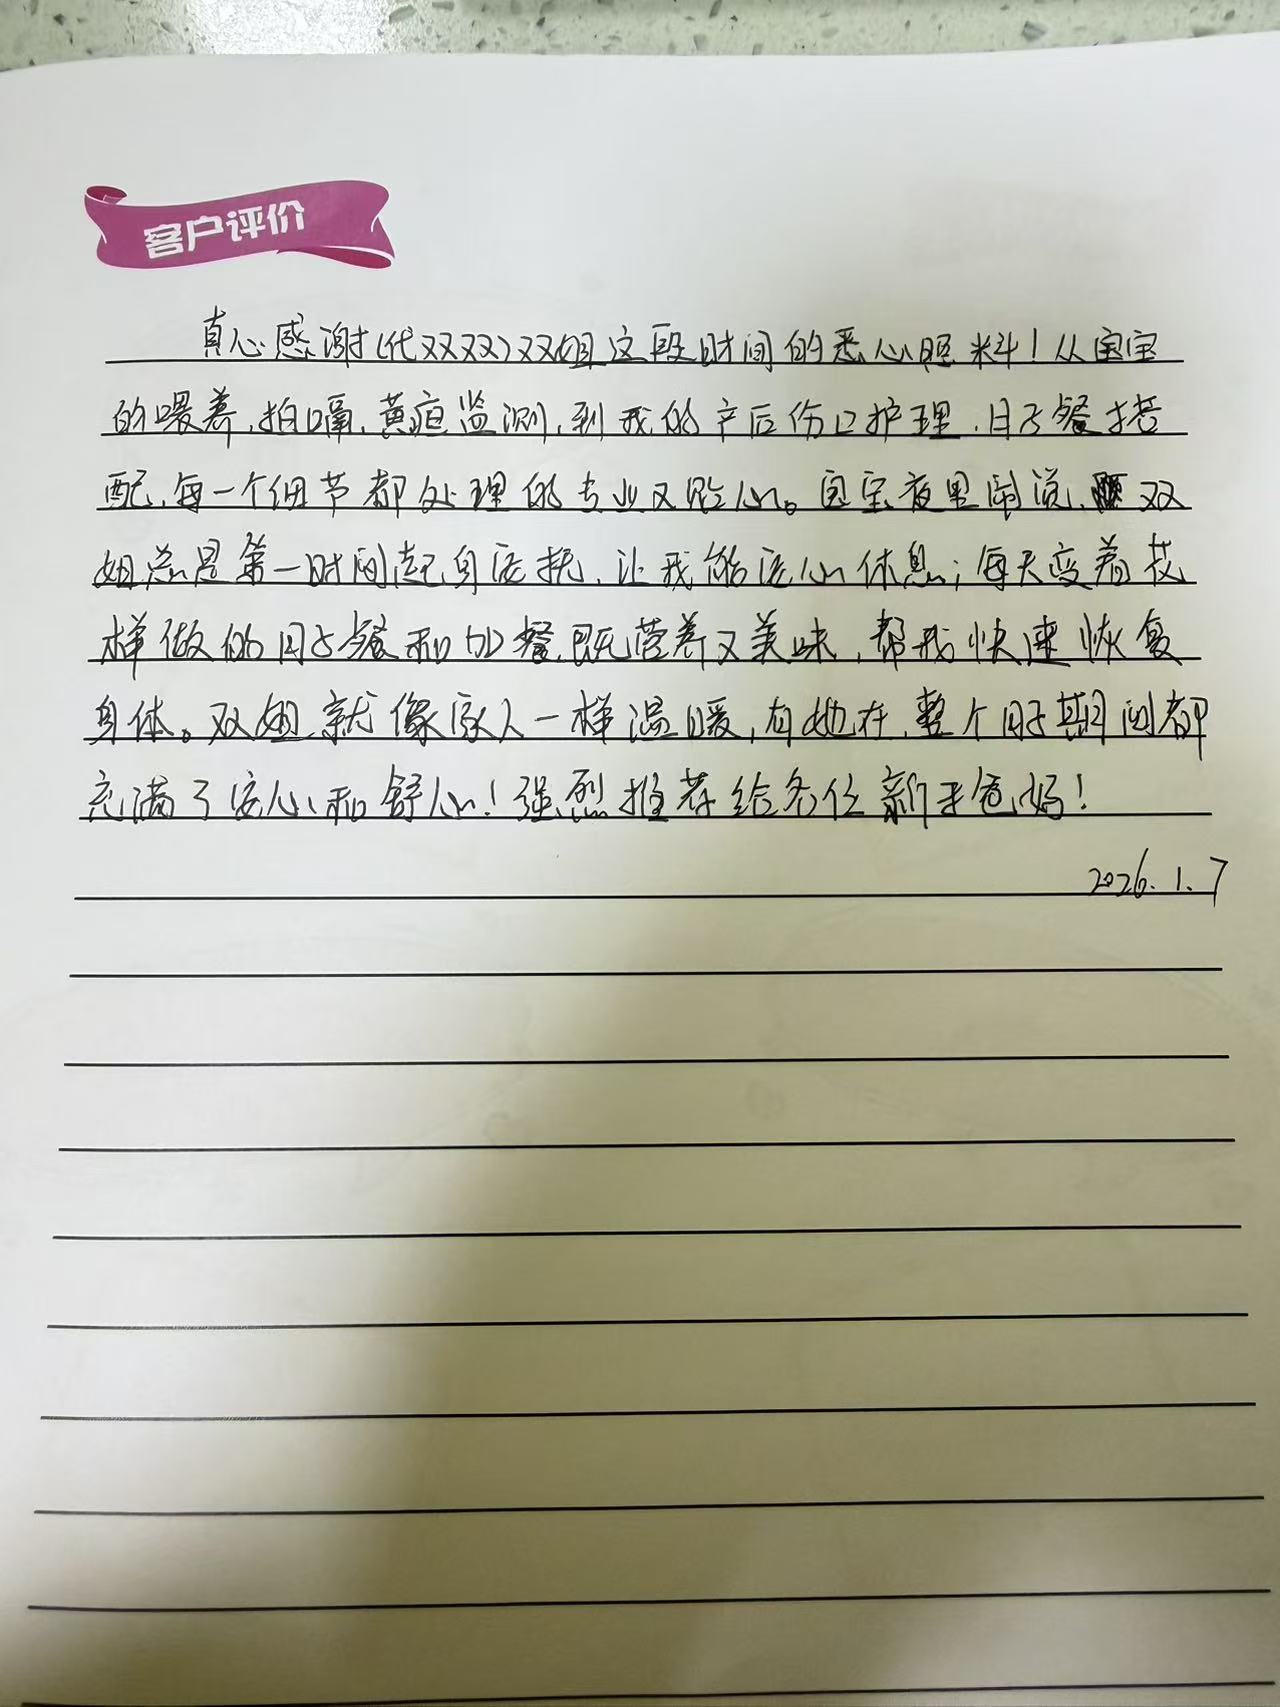 客户评价
真心感谢(代双双)双姐这段时间的悉心照料！从宝宝
的喂养、拍嗝、黄疸监测，到我的产后伤口护理、月子餐搭
配，每一个细节都处理的专业又贴心。宝宝夜里闹觉，双
姐总是第一时间起身安抚，让我能安心休息；每天变着花
样做的月子餐和加餐，既营养又美味，帮我快速恢复
身体。双姐就像家人一样温暖，有她在，整个月子期间都
充满了安心和舒心！强烈推荐给各位新手爸妈！
2026.1.7